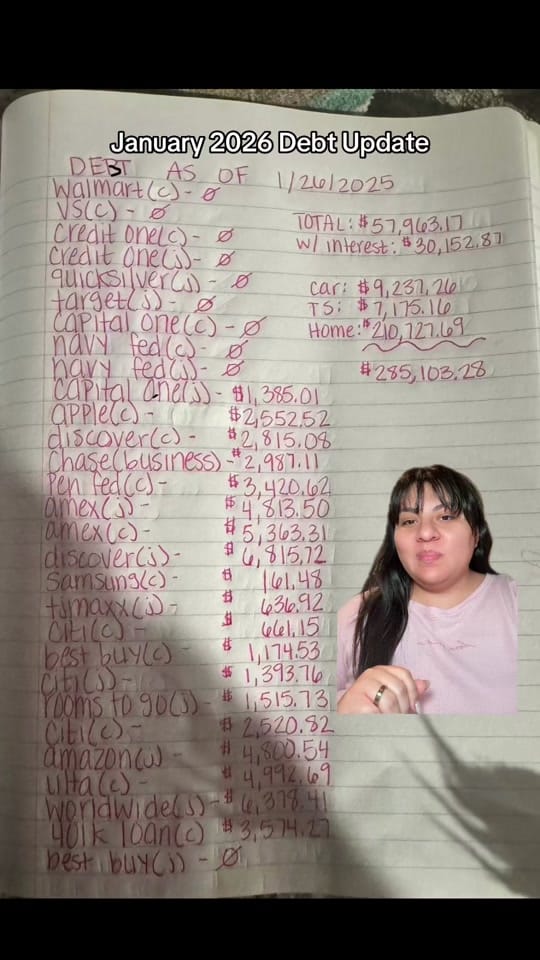 January 2026 Debt Update
DEBT AS OF 1/26/2025
Walmart(c) - ∅
VS(c) - ∅
credit one(c) - ∅
credit one(j) - ∅
quicksilver(j) - ∅
target(j) - ∅
capital one(c) - ∅
navy fed(c) - ∅
navy fed(j) - ∅
capital one(j) - $1,385.01
apple(c) - $2,552.52
discover(c) - $2,815.08
chase(business) - $2,987.11
Pen fed(c) - $3,420.62
amex(j) - $4,813.50
amex(c) - $5,363.31
discover(j) - $6,815.72
Samsung(c) - $161.48
tjmaxx(j) - $636.92
citi(c) - $661.15
best buy(c) - $1,174.53
citi(j) - $1,393.76
rooms to go(j) - $1,515.73
citi(c) - $2,520.82
amazon(j) - $4,800.54
ulta(c) - $4,992.69
worldwide(j) - $6,378.41
401k loan(c) $3,574.27
best buy(j) - ∅
TOTAL: $57,963.17
w/ interest: $30,152.87
car: $9,237.26
TS: $7,175.16
Home: $210,727.69
$285,103.28